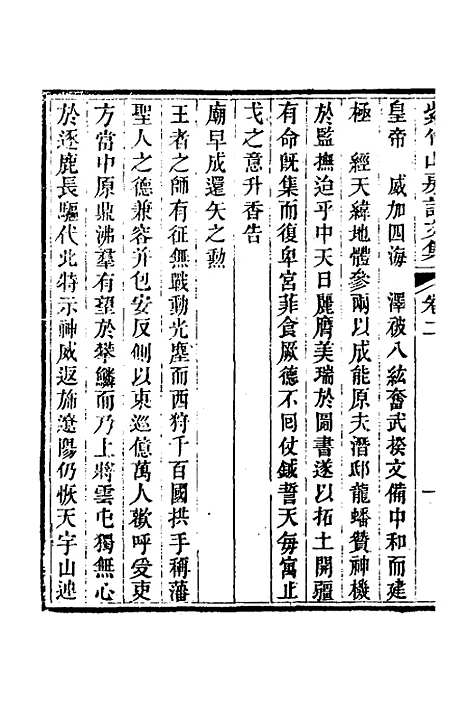 紫竹山房詩文集 卷二 一
皇帝 威加四海 澤被八紘奮武揆文備中和而建
極 經天緯地體參兩以成能原夫潛邸龍蟠贊神機
於監撫迨乎中天日麗膺美瑞於圖書遂以拓土開疆
有命旣集而復卑宮菲食厥德不囘仗鉞誓天每寓止
戈之意升香告
廟早成還矢之勳
王者之師有征無戰動光塵而西狩千百國拱手稱藩
聖人之德兼容并包安反側以東巡億萬人歡呼受吏
方當中原鼎沸羣有望於攀鱗而乃上將雲屯獨無心
於逐鹿長驅代北特示神威返旆遼陽仍恢天宇山述